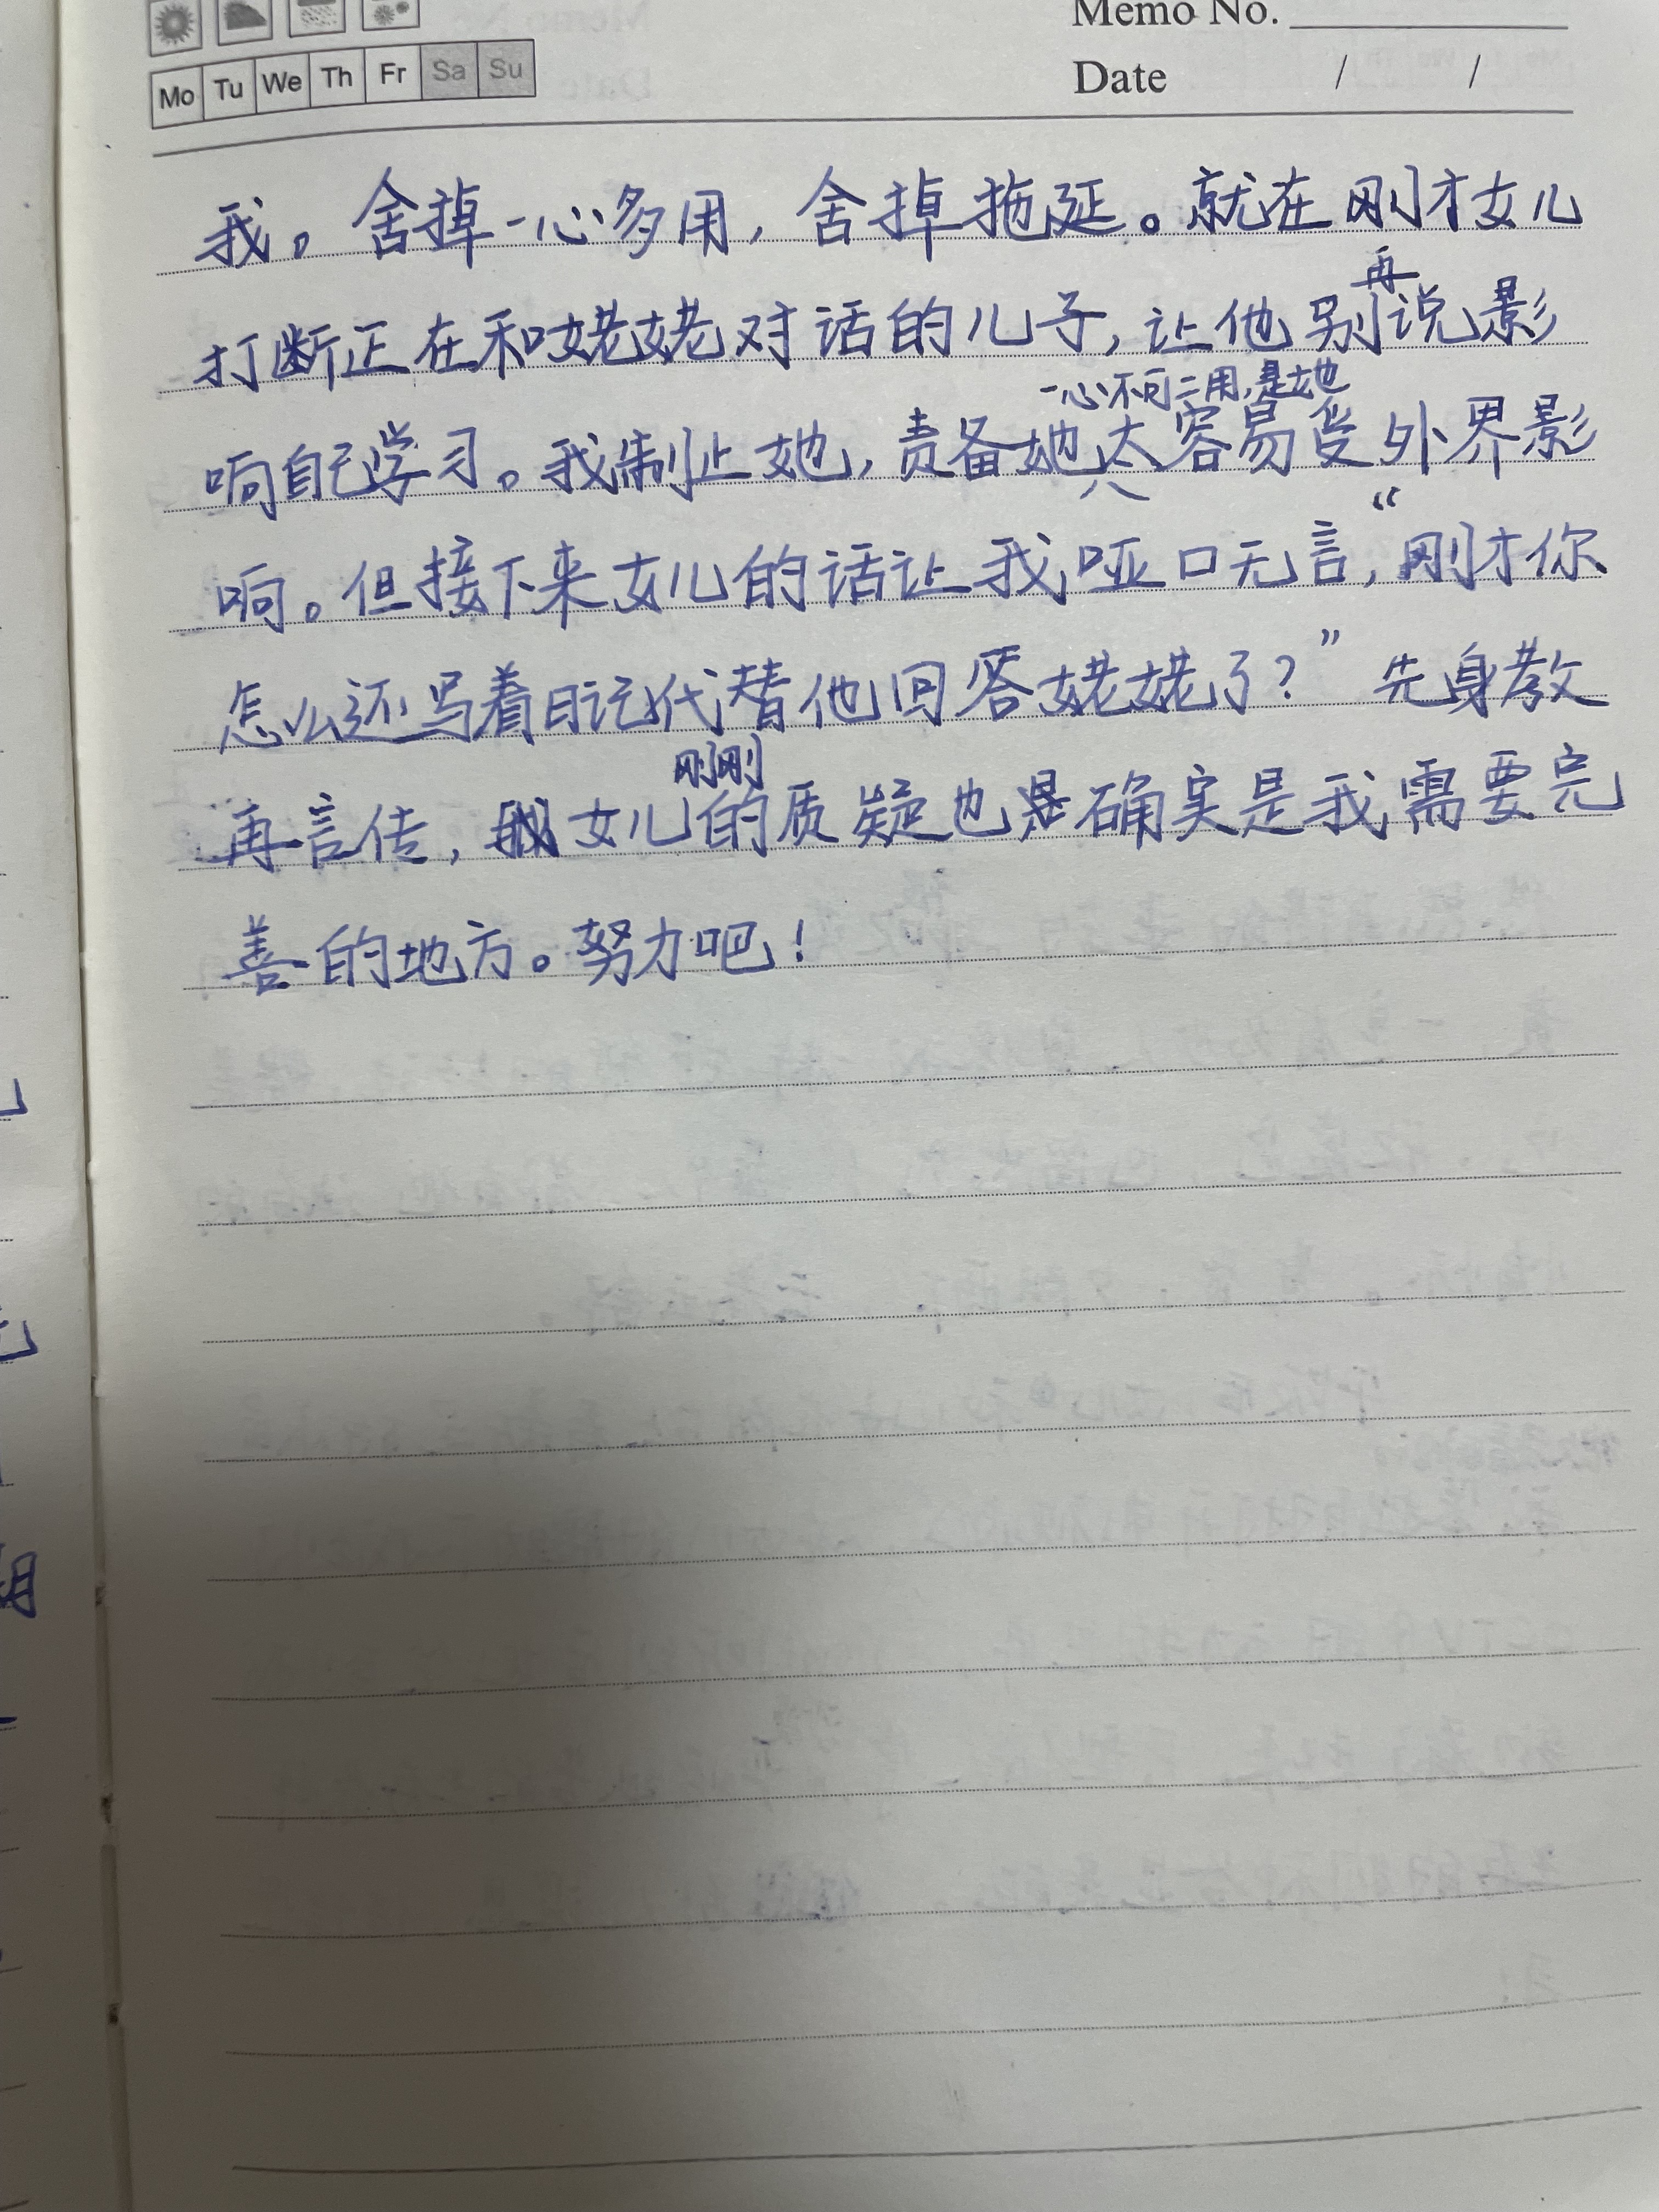 Memo No.
Mo Tu We Th Fr Sa Su
Date / /
我。舍掉一心多用，舍掉拖延。就在刚才女儿
再
打断正在和姥姥对话的儿子，让他别说影
一心不可二用，是她
响自己学习。我制止她，责备她太容易受外界影
响。但接下来女儿的话让我哑口无言，“刚才你
怎么还写着日记代替他回答姥姥了？”先身教
刚刚
再言传，女儿的质疑也是确实是我需要完
善的地方。努力吧！